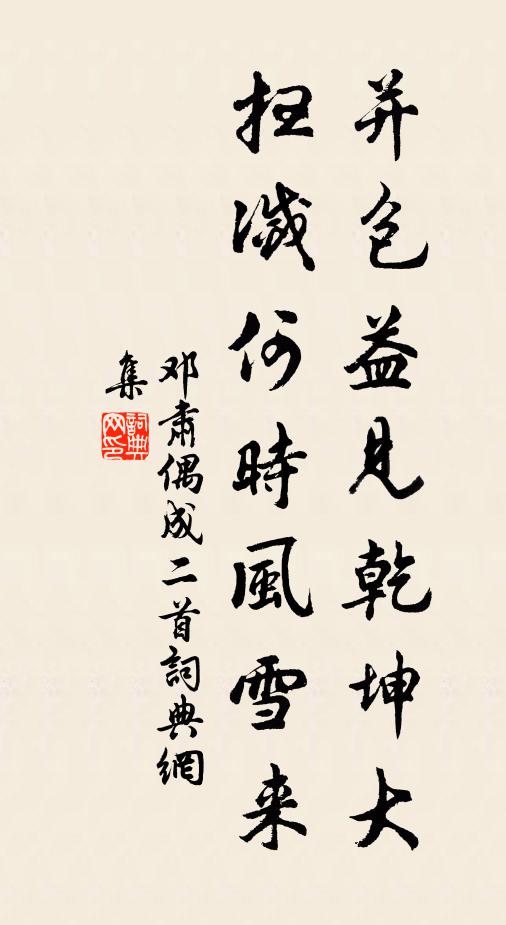 并包益見乾坤大
抂濺何時風雪来
邓肅偶成二首詞典網
集
詞典
网印